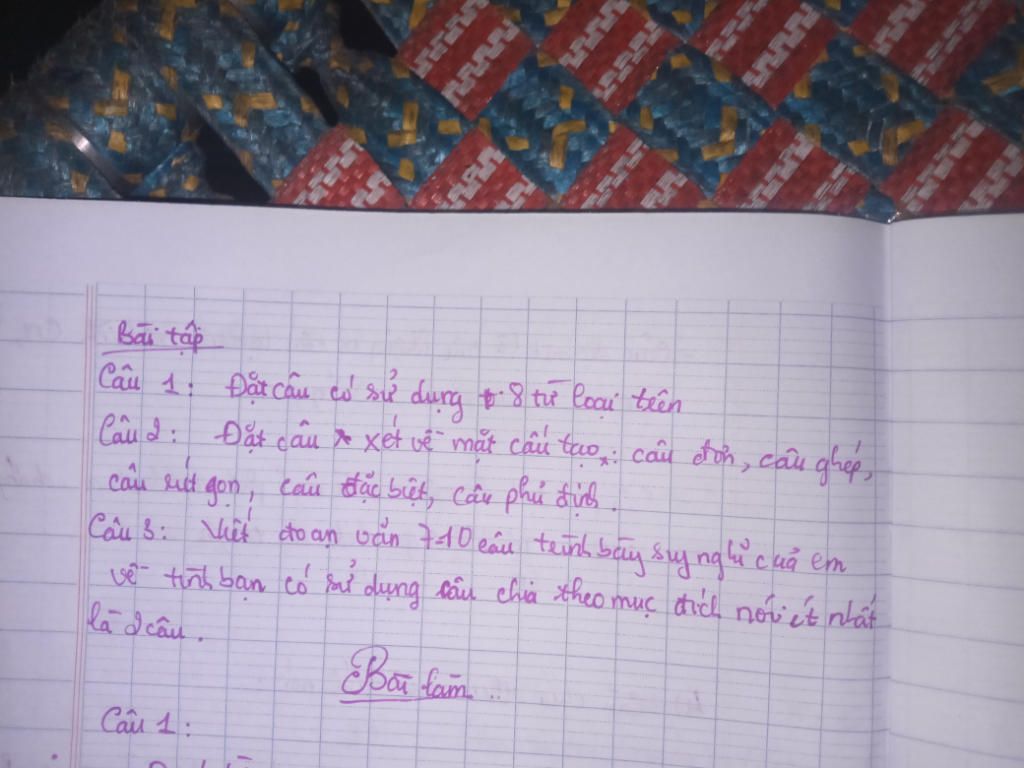 Bài tập
Câu 1: Đặt câu có sử dụng 8 từ loại trên
Câu 2: Đặt câu xét về mặt cấu tạo: câu đơn, câu ghép,
câu rút gọn, câu đặc biệt, câu phủ định.
Câu 3: Viết đoạn văn 7-10 câu trình bày suy nghĩ của em
về tình bạn có sử dụng câu chia theo mục đích nói ít nhất
là 2 câu.
Bài làm
Câu 1: